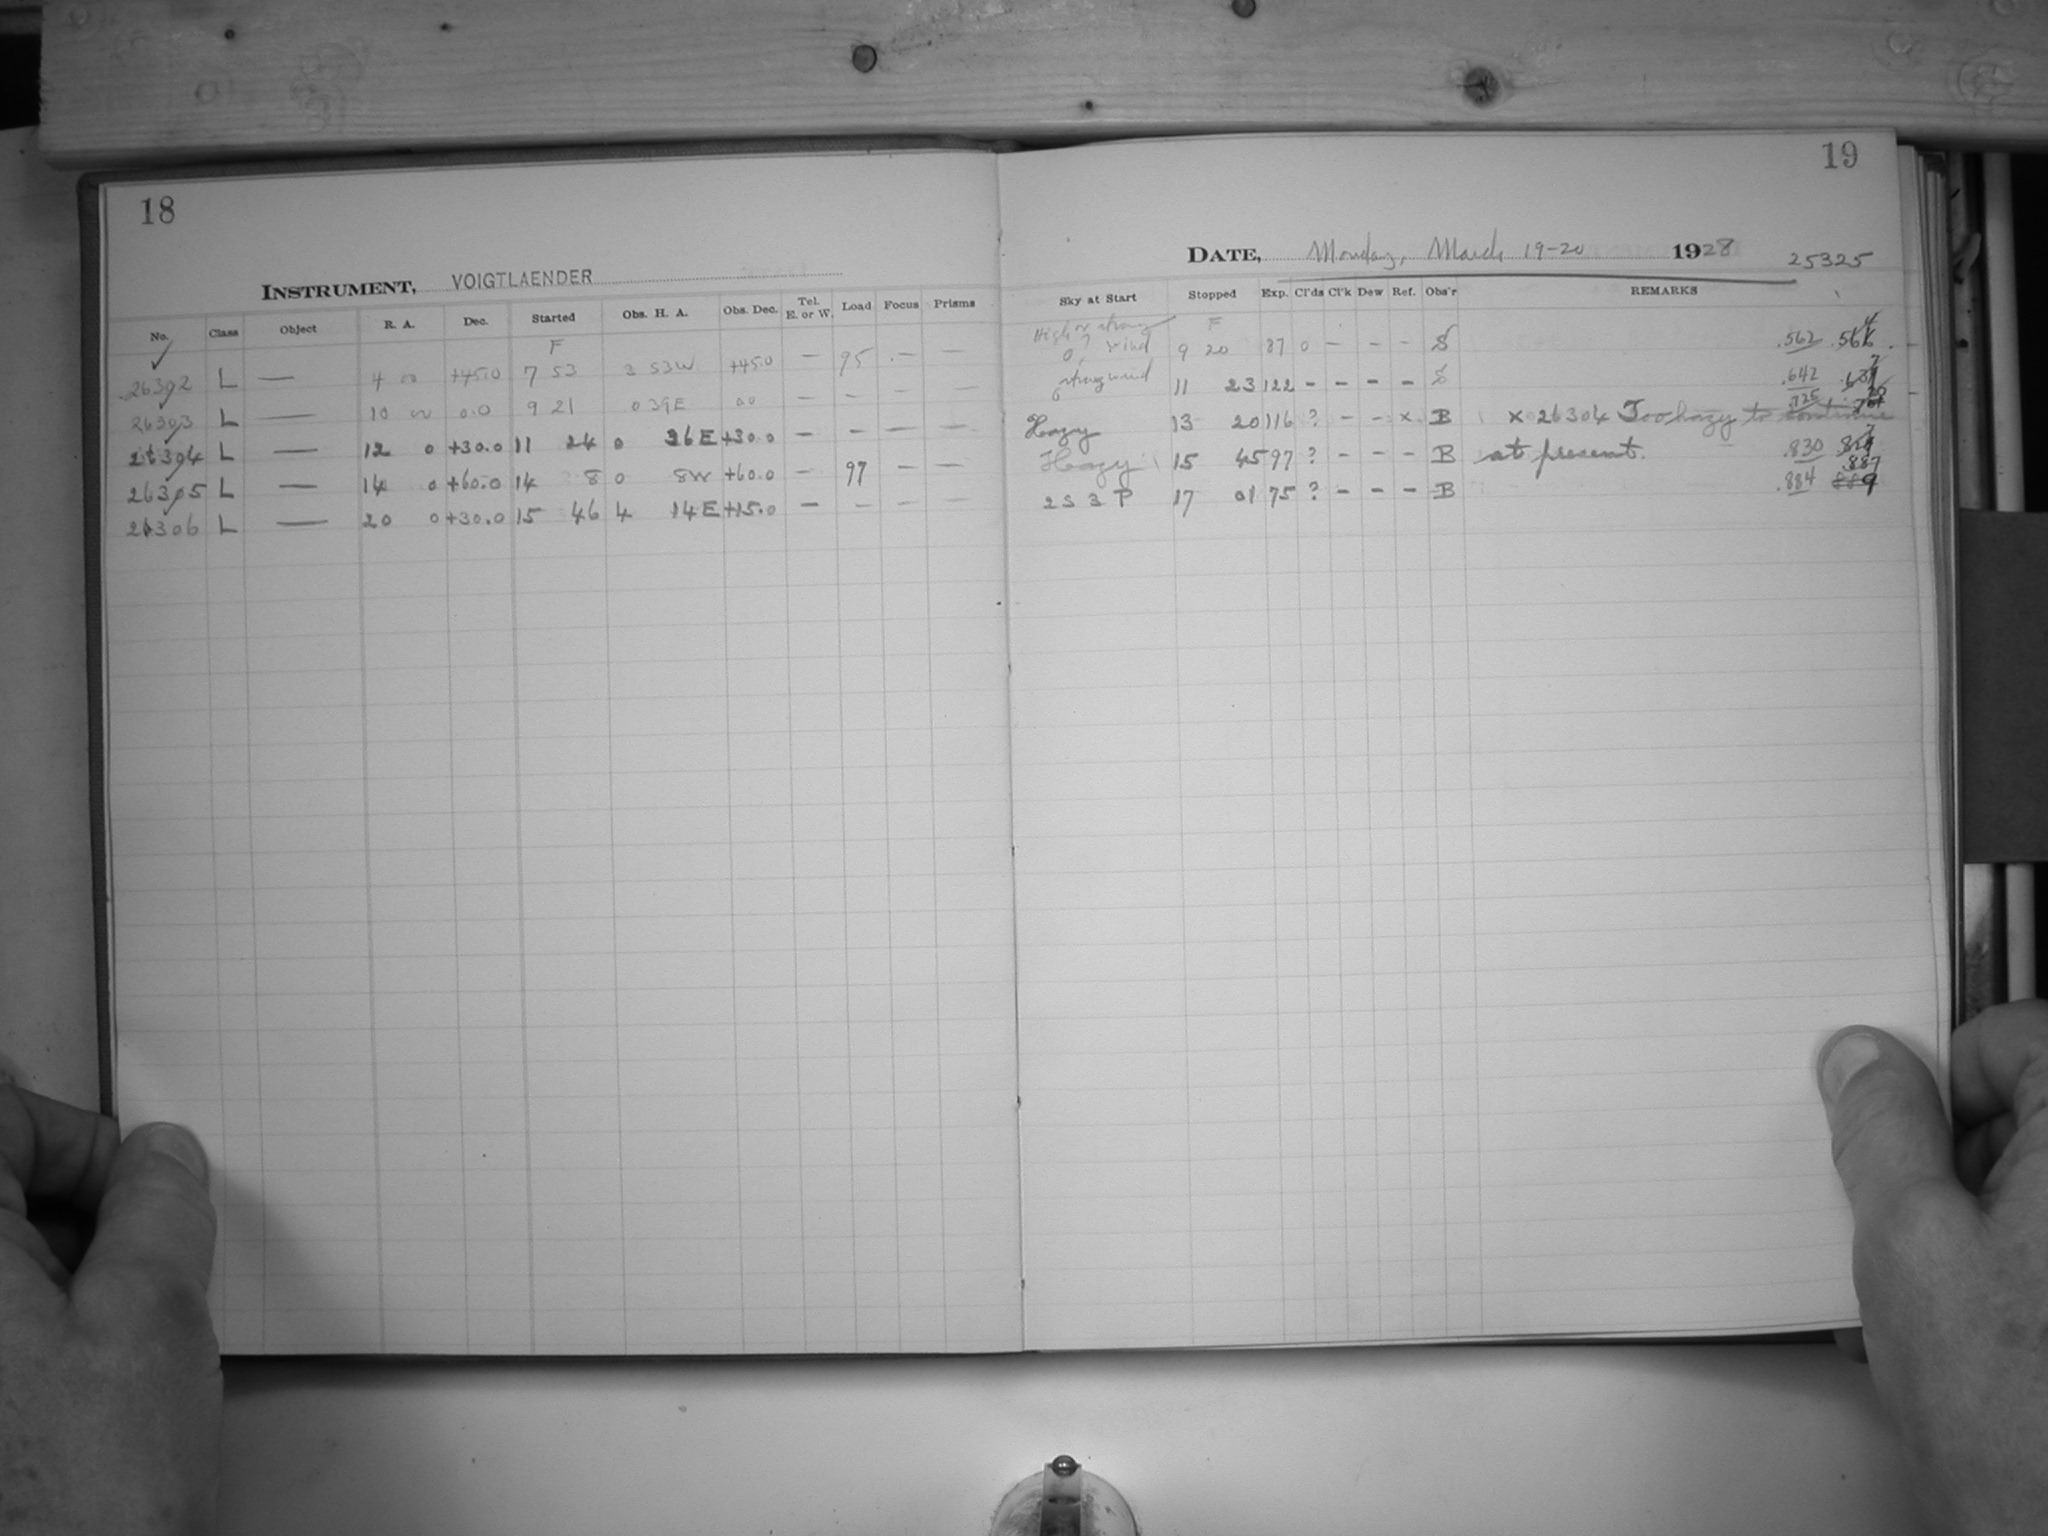 18
INSTRUMENT, VOIGTLAENDER
No. Class Object R. A. Dec. Started Obs. H. A. Obs. Dec. Tel. E. or W. Load Focus Prisms
F
26302 L — 4 00 +45.0 7 53 3 53W +45.0 — 95 — —
26303 L — 10 00 0.0 9 21 0 39E 00 — — — —
26304 L — 12 0 +30.0 11 24 0 36E +30.0 — — — —
26305 L — 14 0 +60.0 14 8 0 8W +60.0 — 97 — —
26306 L — 20 0 +30.0 15 46 4 14E +15.0 — — — —
19
DATE, Monday, March 19-20 1928 25325
Sky at Start Stopped Exp. Cl'ds Cl'k Dew Ref. Obs'r REMARKS
High strong F
wind 9 20 87 0 – – – S .562
strong wind 11 23 122 – – – – S .642
Hazy 13 20 116 ? – – x B x 26304 Too hazy to continue .725
Hazy 15 45 97 ? – – – B at present. .830
2 S 3 P 17 01 75 ? – – – B .884 .887